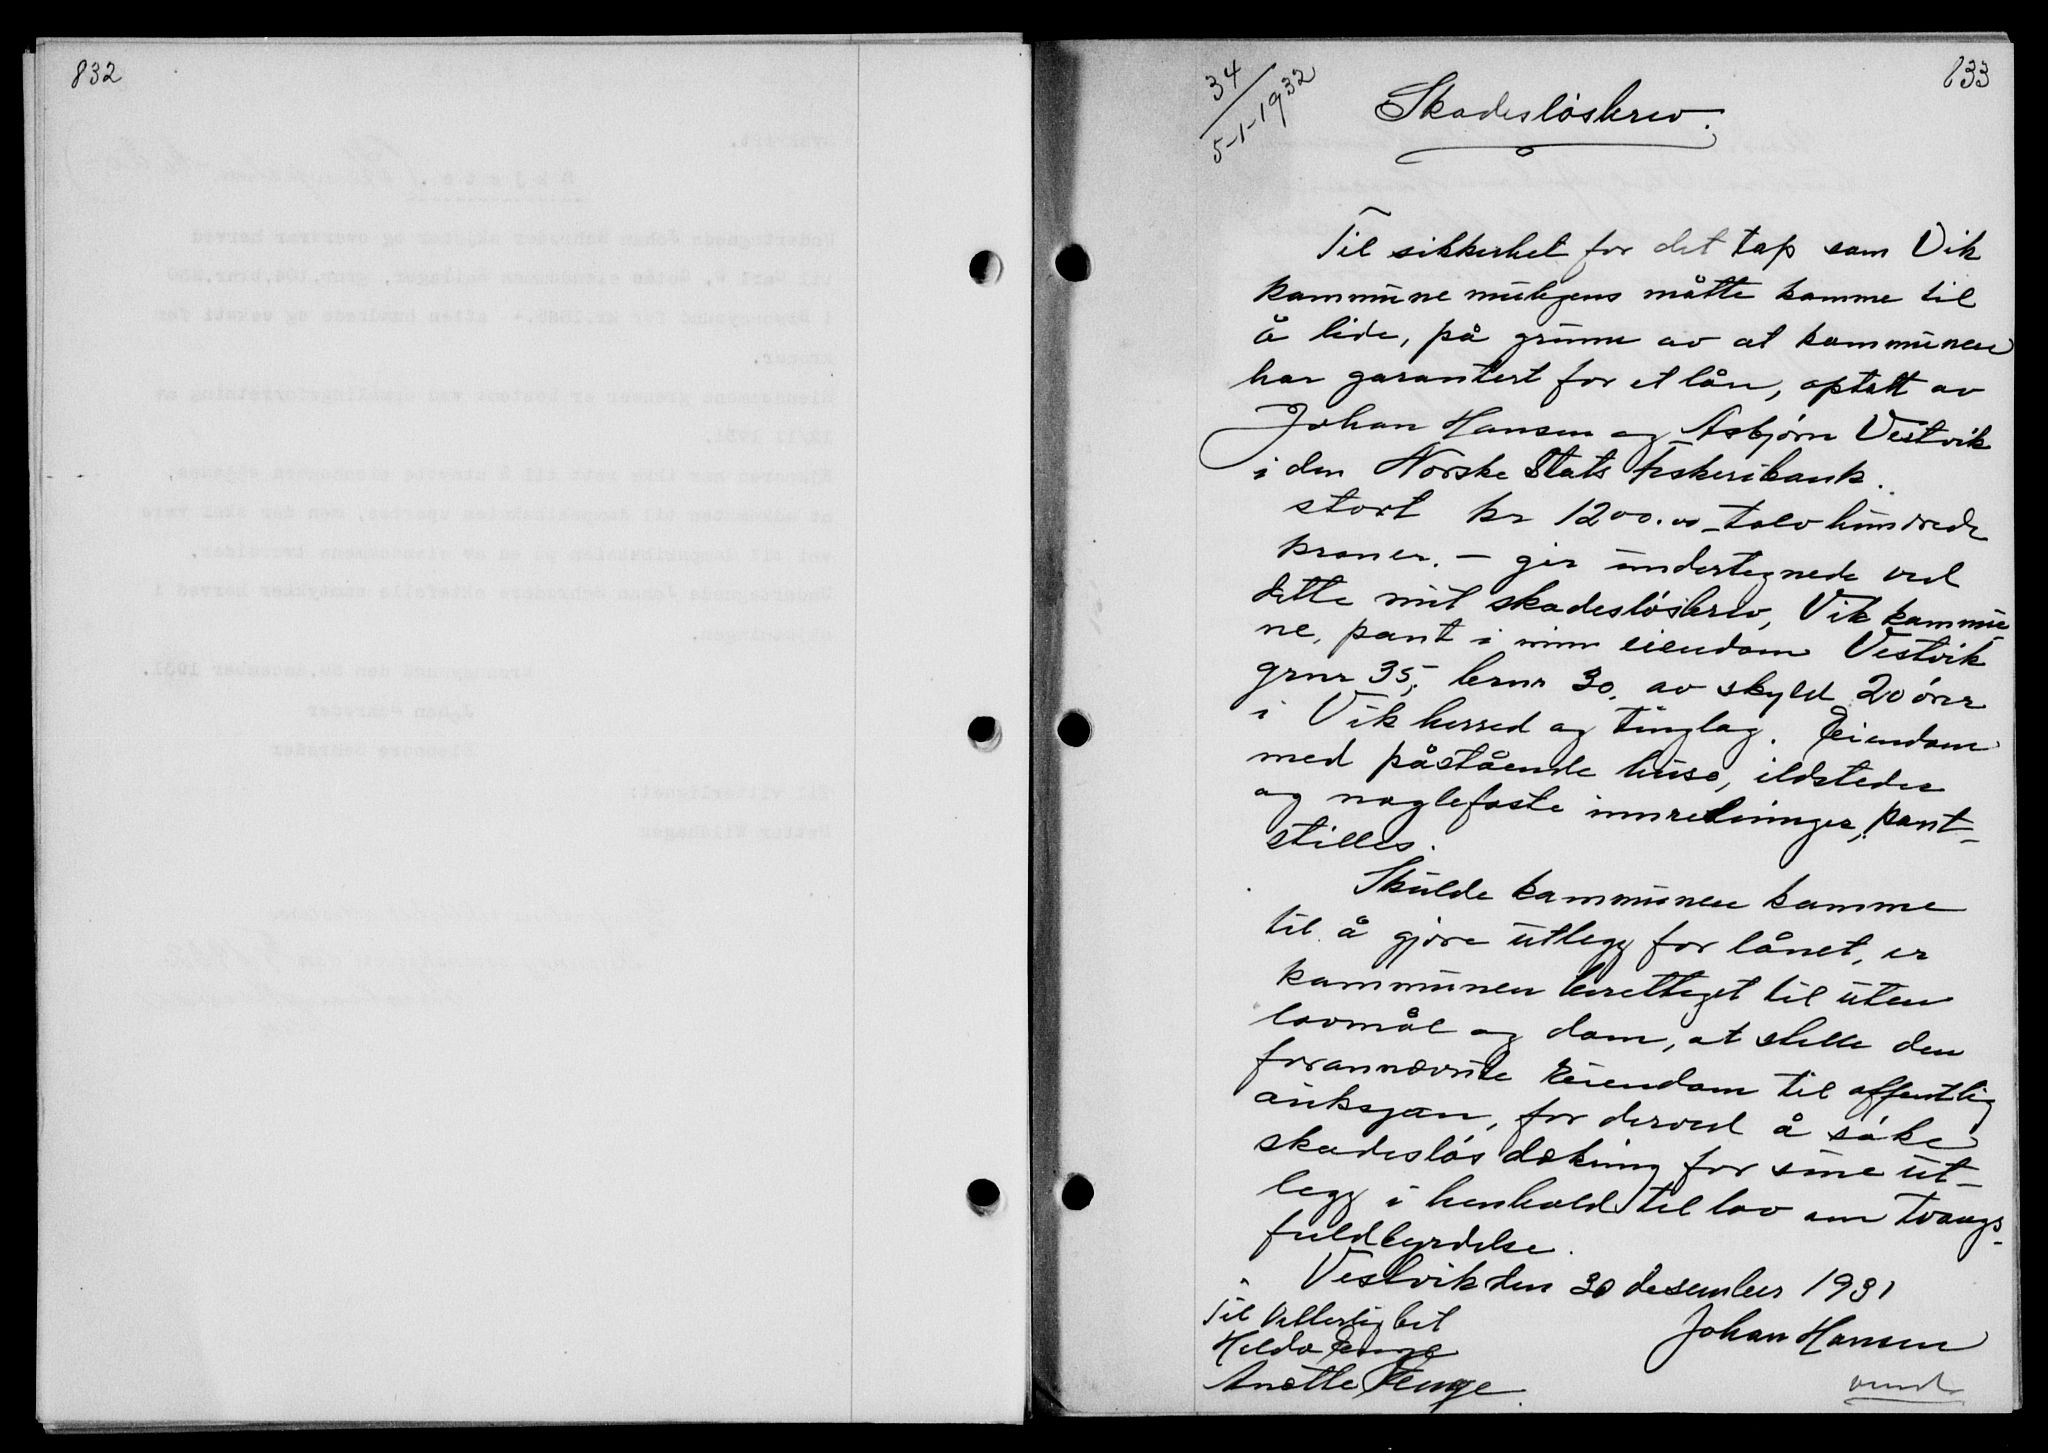 832
833
34
5-1-1932
Skadesløsbrev.
Til sikkerhet for det tap som Vik
kommune muligens måtte komme til
å lide, på grunn av at kommunen
har garantert for et lån, optatt av
Johan Hansen og Asbjørn Vestvik
i den Norske Stats Fiskeribank.
stort kr 1200.00 – tolv hundrede
kroner. – gir undertegnede ved
dette mit skadesløsbrev, Vik kommu
ne, pant i min eiendom Vestvik
grnr 35, brnr 30. av skyld 20 ører
i Vik herred og tinglag. Eiendom
med påstående huse, ildsteder
og naglefaste innredninger, pant-
stilles.
Skulde kommunen komme
til å gjøre utlegg for lånet, er
kommunen berettiget til uten
lovmål og dom, at stille den
forannævnte eiendom til offentlig
auksjon, for derved å søke
skadesløs dekning for sine ut-
legg i henhold til lov om tvangs-
fuldbyrdelse.
Vestvik den 30 desember 1931
Til Vitterlighet
Johan Hansen
Hilda
Anette Fenge
vend